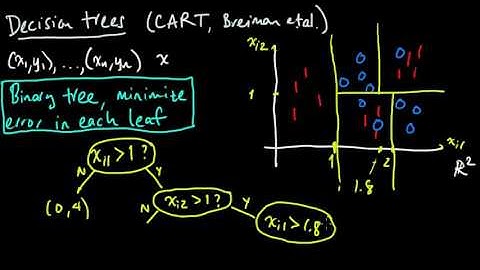 Decision trees (CART, Breiman et al.)
(x₁,y₁), ..., (xₙ,yₙ) x
Binary tree, minimize
error in each leaf
xᵢ₁>1?
N Y
(0,4)
xᵢ₂>1?
N Y
xᵢ₁>1.8?
xᵢ₂
1
1 2 xᵢ₁
1.8
ℝ²